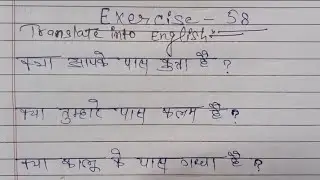 Exercise - 58
Translate into English:-
क्या आपके पास कुत्ता है ?
क्या तुम्हारे पास कलम है ?
क्या कालू के पास गधा है ?